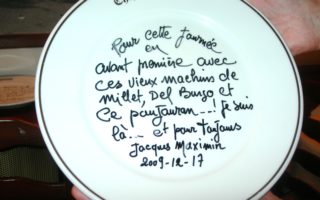 Pour cette journée
en
avant première avec
ces vieux machins de
millet, Del Burgo et
Ce pauJauran--! je suis
là... et pour toujours
Jacques Maximin
2009-12-17